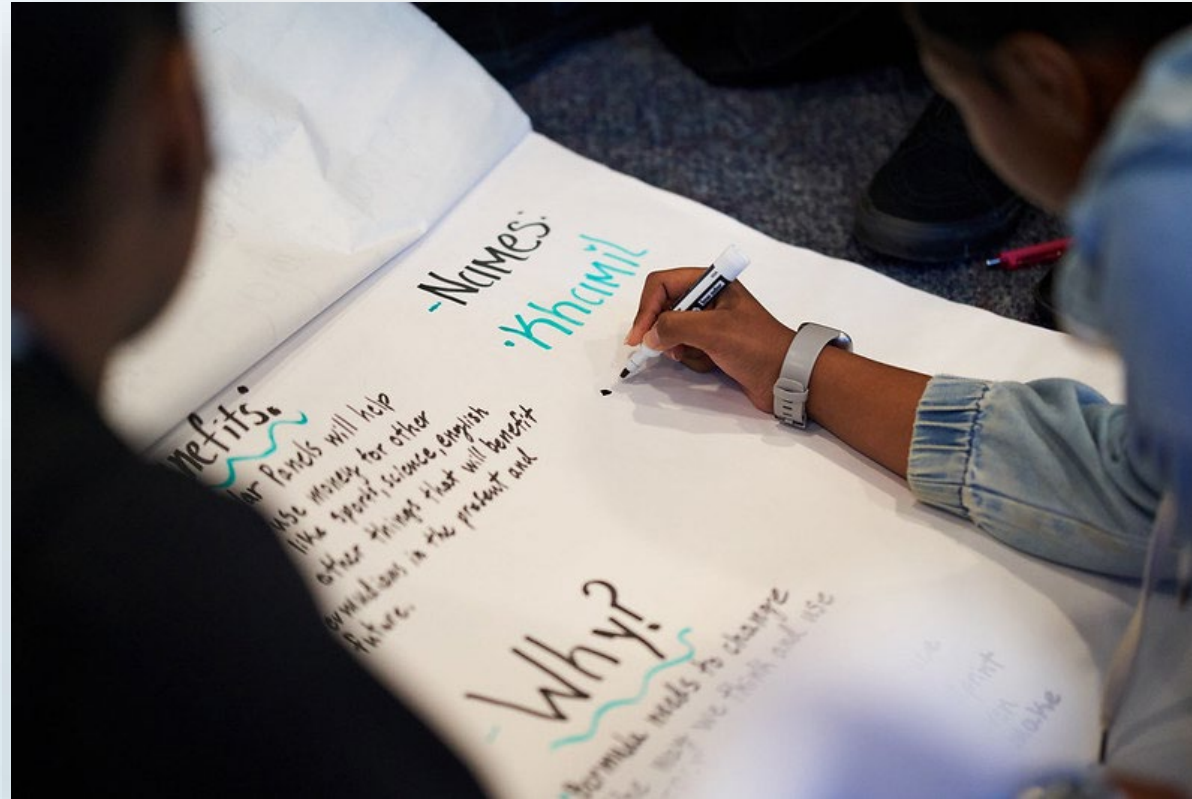 -Names:
·Khamil
nefits:
ar Panels will help
use money for other
like sports, science, english
other things that will benefit
in the present and
future.
Why?
needs to change
way we think and use
print
make